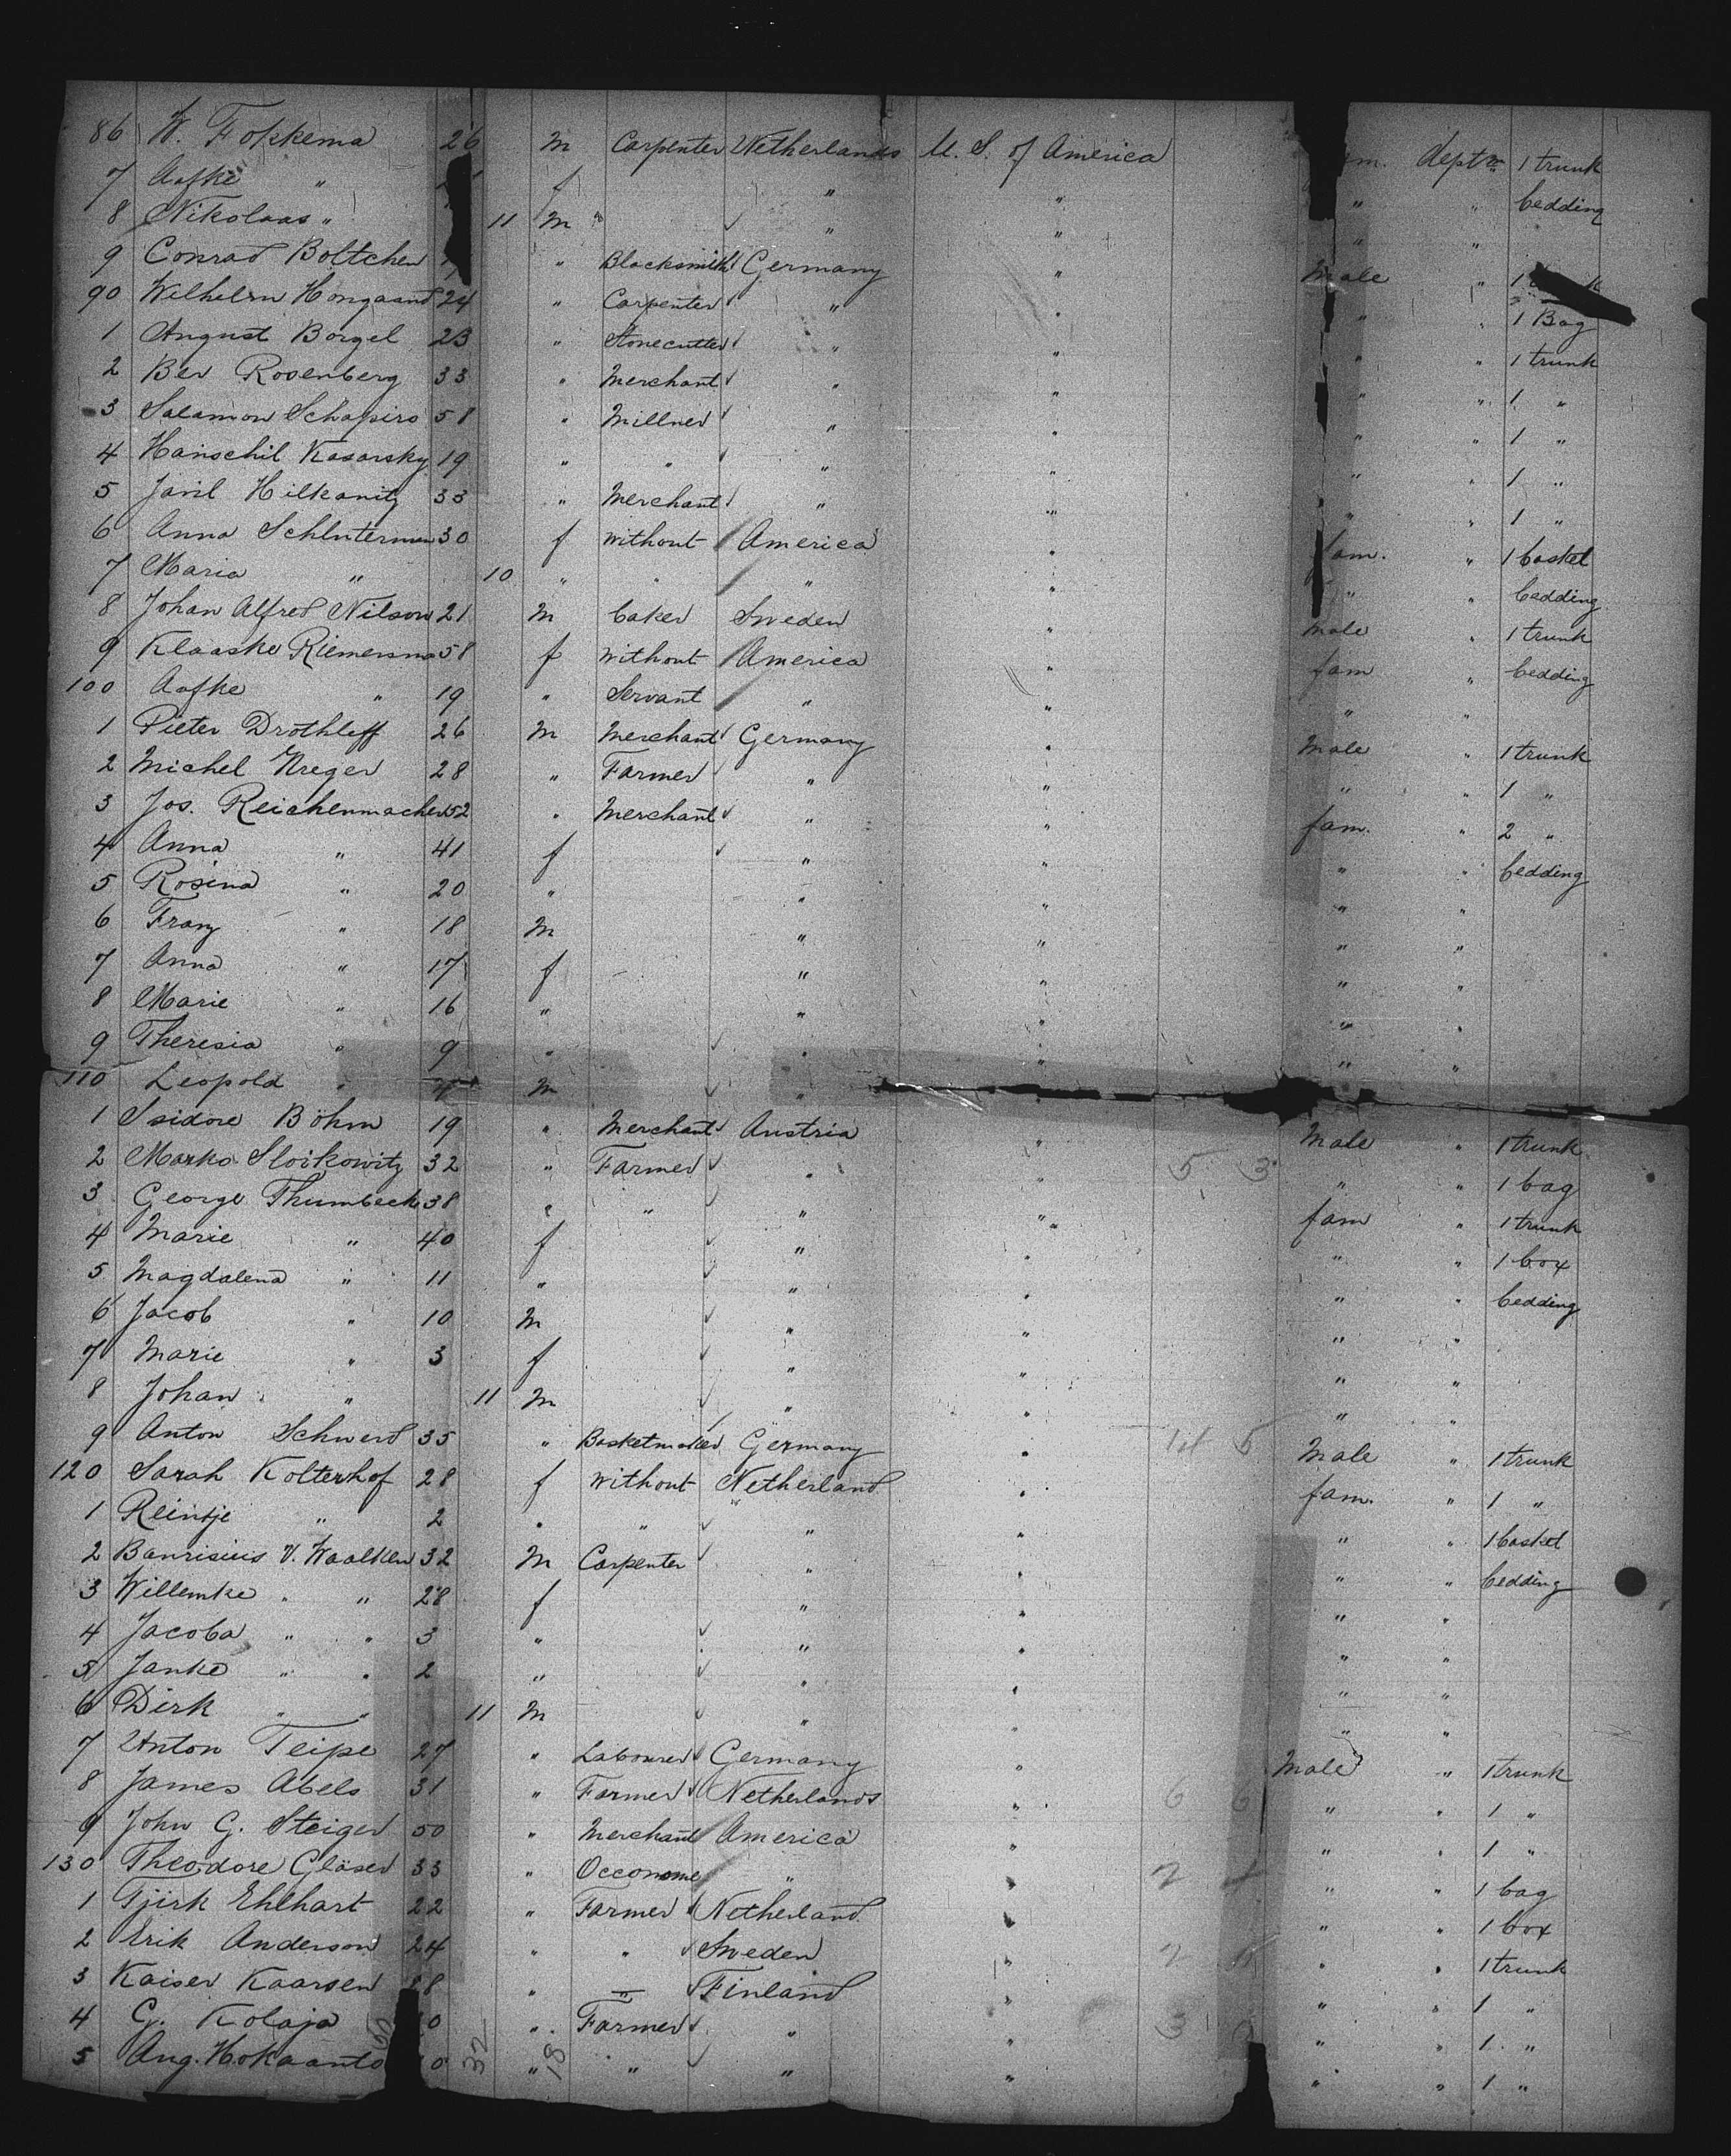 86 W. Fokkema 26 m Carpenter Netherlands U. S. of America dept. 1 trunk
7 Aafke " f " " " " bedding
8 Nikolaas " 11 m " " " " "
9 Conrad Boltchen " Blacksmith Germany " Male " 1
90 Wilhelm Hongaand 24 " Carpenter " " " " 1 Bag
1 August Borgel 23 " Stonecutter " " " " 1 trunk
2 Ber Rosenberg 33 " Merchant " " " " 1 "
3 Salamon Schapiro 58 " Millner " " " " 1 "
4 Hanschil Kasarsky 19 " " " " " " 1 "
5 33 " Merchant " " " " 1 "
6 Anna 30 f without America " fam. " 1 basket
7 Maria " 10 " " " " " " bedding
8 Johan Alfred Nilson 21 m baker Sweden " Male " 1 trunk
9 Klaaske Riemersma 58 f without America " fam " bedding
100 Aafke " 19 " Servant " " " "
1 Pieter Drothleff 26 m Merchant Germany " Male " 1 trunk
2 Michel 28 " Farmer " " " " 1 "
3 Jos. Reichenmacher 52 " Merchant " " fam. " 2 "
4 Anna " 41 f " " " " bedding
5 Rosina " 20 " " " " "
6 Franz " 18 m " " " "
7 Anna " 17 f " " " "
8 Marie " 16 " " " " "
9 Theresia " 9 " " " " "
110 Leopold " m "
1 Isidore Böhm 19 " Merchant Austria " Male " 1 trunk
2 Marko Sloikowitz 32 " Farmer " " 5 3 " " 1 bag
3 George Thumbeck 38 " " " " fam " 1 trunk
4 Marie " 40 f " " " " 1 box
5 Magdalena " 11 " " " " " bedding
6 Jacob " 10 m " " " "
7 Marie " 3 f " " " "
8 Johan " 11 m " " " "
9 Anton Schwerd 35 " Basketmaker Germany " 5 Male " 1 trunk
120 Sarah Kolterhof 28 f without Netherland " fam. " 1 "
1 Reintje " 2 " " " " " " 1 basket
2 V. Waalken 32 m Carpenter " " " " bedding
3 Willemke " " 28 f " " " "
4 Jacoba " " 3 " " " " "
5 Janke " " 2 " " " " "
6 Dirk " " 11 m " " " "
7 Anton Teipe 27 " Labourer Germany " Male " 1 trunk
8 James Abels 31 " Farmer Netherlands " 6 6 " " 1 "
9 John G. Steiger 50 " Merchant America " " " 1 "
130 Theodore Gläser 33 " Occonome " " 2 " " 1 bag
1 Tjirk Ehlhart 22 " Farmer Netherland " " " 1 box
2 Erik Anderson 24 " " Sweden " 2 " " 1 trunk
3 Kaiser Kaarsen " " Finland " " " 1 "
4 G. Kolaja " Farmer " " 3 " " 1 "
5 Aug. Hokaanto " " " " " " 1 "
32 18